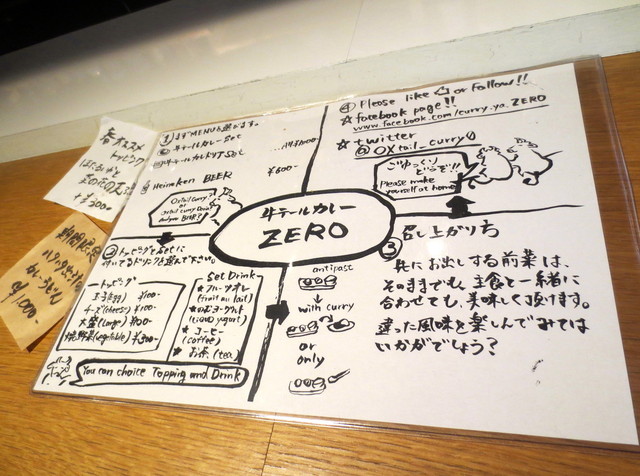 春オススメ
トッピング
ほたるいかと
菜の花の
+¥300
¥1,000-
① まずMENUを選びます。
牛テールカレーSet
牛テールカレードリアSet
Heineken BEER ¥600-
Oxtail curry?
or
oxtail curry Doria?
And you BEER?
牛テールカレー
ZERO
④ Please like or Follow!!
☆ facebook page!!
www.facebook.com/curry.ya.ZERO
☆ twitter
@OXtail_curry0
ごゆっくり
どうぞ!!
Please make
yourself at home
② トッピングとSetに
付いてるドリンクを選んで下さい。
トッピング
玉子(egg) ¥100-
チーズ(cheese) ¥100-
大盛(Large) ¥100-
焼野菜(vegetable) ¥300-
Set Drink
★ フルーツオレ
(fruit au lait)
★ のむヨーグルト
(liquid yogurt)
★ コーヒー
(coffee)
★ お茶(tea)
You can choice Topping and Drink
antipast
with curry
or
only
③ 召し上がり方
先にお出しする前菜は、
そのままでも、主食と一緒に
合わせても、美味しく頂けます。
違った風味を楽しんでみては
いかがでしょう?